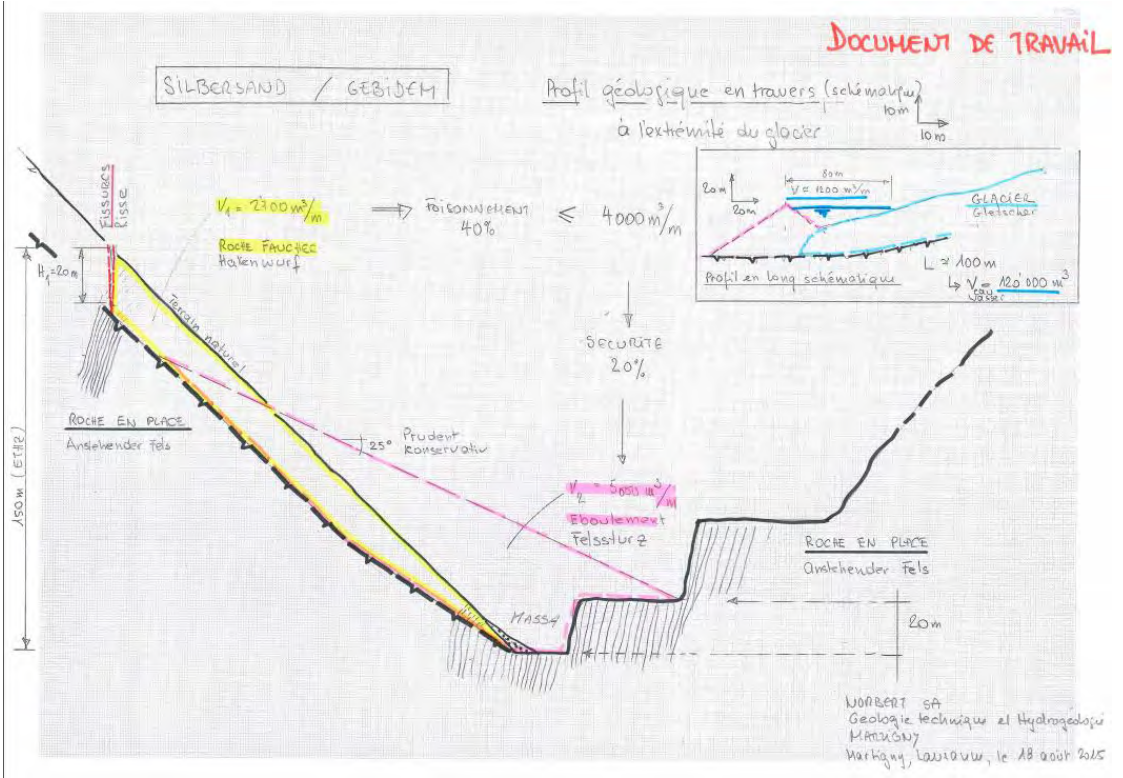 DOCUMENT DE TRAVAIL
SILBERSAND / GEBIDEM
Profil géologique en travers (schématique)
à l'extrémité du glacier
10m
10m
FISSURES
Risse
V₁ = 2700 m³/m
ROCHE FAUCHEE
Hakenwurf
FOISONNEMENT
40%
≤ 4000 m³/m
H₁=20m
Terrain naturel
SECURITE
20%
80m
V = 1200 m³/m
20m
20m
GLACIER
Gletscher
L = 100m
↳ V eau = 120'000 m³
Wasser
Profil en long schématique
ROCHE EN PLACE
Anstehender Fels
150m (ETHZ)
25°
Prudent
Konservativ
V₂ = 5000 m³/m
Eboulement
Felssturz
ROCHE EN PLACE
Anstehender Fels
MASSA
20m
NORBERT SA
Géologie technique et Hydrogéologie
MARTIGNY
Martigny, Lausanne, le 18 août 2015